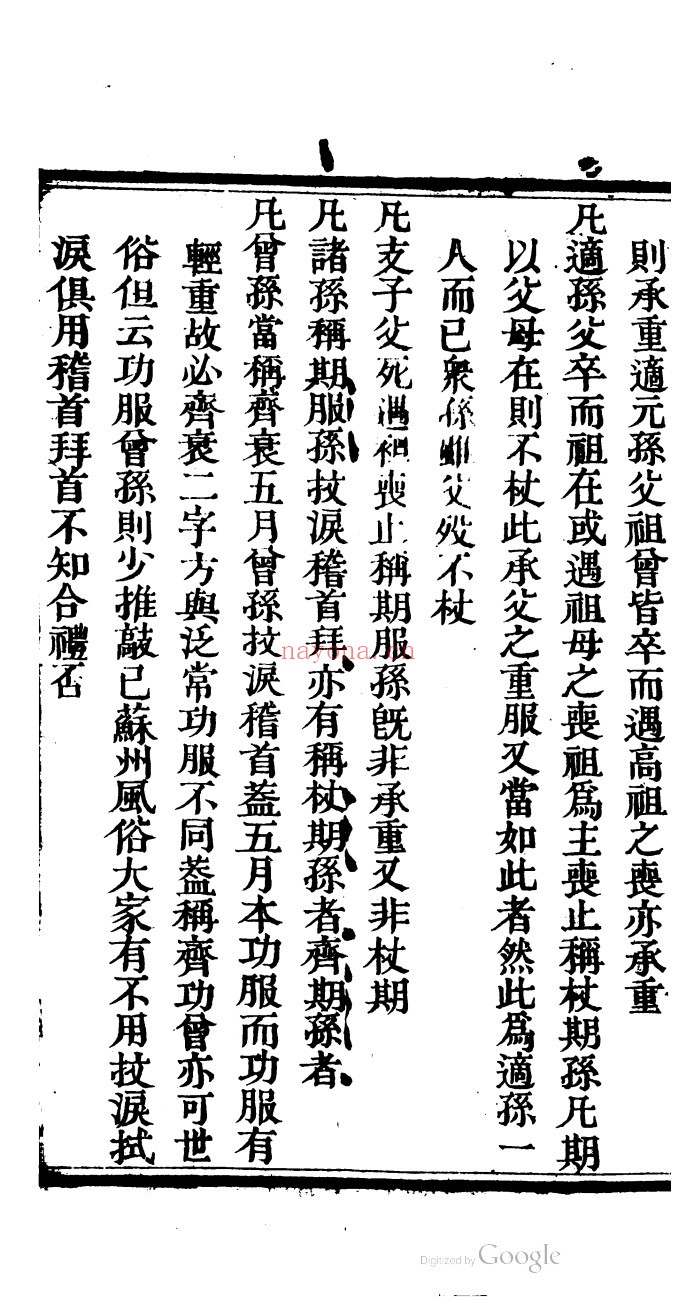 則承重適元孫父祖曾皆卒而遇高祖之喪亦承重
凡適孫父卒而祖在或遇祖母之喪祖爲主喪止稱杖期孫凡期
以父母在則不杖此承父之重服又當如此者然此爲適孫一
人而已衆孫雖父歿不杖
凡支子父死遇祖喪止稱期服孫旣非承重又非杖期
凡諸孫稱期服孫抆淚稽首拜亦有稱杖期孫者齊期孫者
凡曾孫當稱齊衰五月曾孫抆淚稽首葢五月本功服而功服有
輕重故必齊衰二字方與泛常功服不同葢稱齊功曾亦可世
俗但云功服曾孫則少推敲已蘇州風俗大家有不用抆淚拭
淚俱用稽首拜首不知合禮否
nayona.cn
Digitized by Google